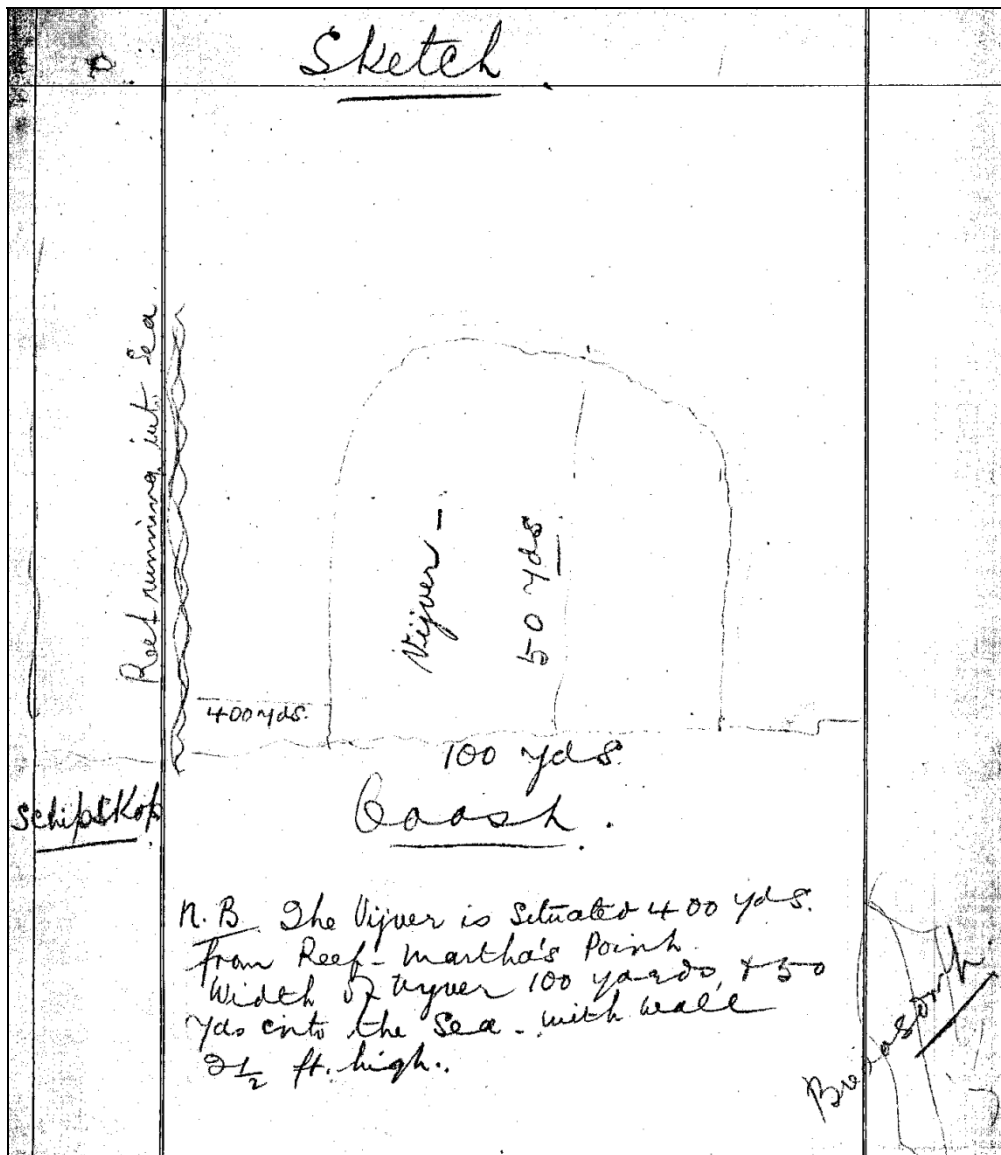 Sketch
Reef running into Sea.
Vijver -
50 yds
400 yds.
100 yds
Schipskop.
Coast.
N.B. The Vijver is situated 400 yds.
from Reef - Martha's Point.
Width of Vyver 100 yards, + 50
Yds into the Sea - with wall
2½ ft. high.